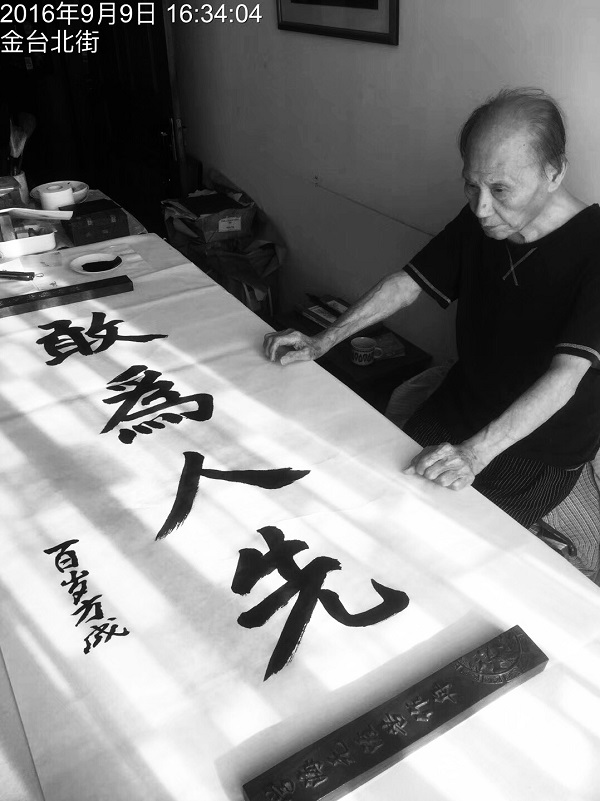 2016年9月9日 16:34:04
金台北街
敢為人先
百岁方成